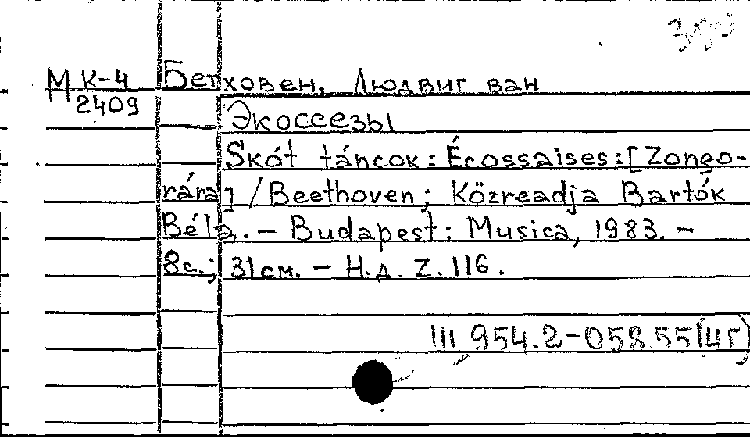 МК-4 Бетховен, Людвиг ван
2409
Экоссезы
Skót táncok: Écossaises: [Zongo-
rára] / Beethoven; Közreadja Bartók
Béla. – Budapest: Musica, 1983. –
8с.; 31см. – Н.д. Z. 116.
Ш 954.2-058.55(4Г)